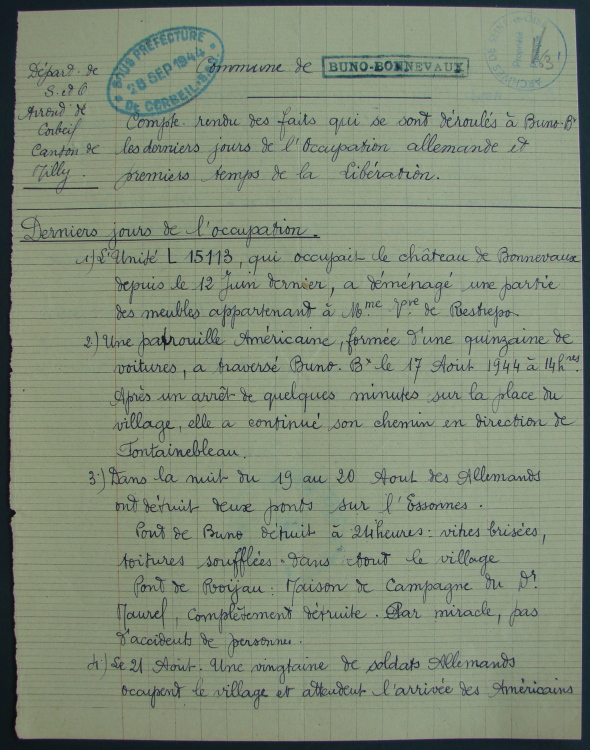 SOUS-PRÉFECTURE
28 SEP 1944
DE CORBEIL (S.&O.)
Commune de BUNO-BONNEVAUX
Départ. de
S. et O
Arrond de
Corbeil
Canton de
Milly.
Compte-rendu des faits qui se sont déroulés à Buno-Bx
les derniers jours de l'Occupation allemande et
premiers temps de la libération.
Derniers jours de l'occupation.
1) L'Unité L 15113, qui occupait le château de Bonnevaux
depuis le 12 Juin dernier, a déménagé une partie
des meubles appartenant à Mme Vve de Restrepo.
2) Une patrouille Américaine, formée d'une quinzaine de
voitures, a traversé Buno-Bx le 17 Aout 1944 à 14hres.
Après un arrêt de quelques minutes sur la place du
village, elle a continué son chemin en direction de
Fontainebleau.
3) Dans la nuit du 19 au 20 Aout des Allemands
ont détruit deux ponts sur l'Essonnes.
Pont de Buno détruit à 24heures: vitres brisées,
toitures soufflées dans tout le village
Pont de Roijau: Maison de Campagne du Dr
Maurel, complètement détruite. Par miracle, pas
d'accidents de personnes.
4) Le 21 Aout. Une vingtaine de soldats Allemands
occupent le village et attendent l'arrivée des Américains